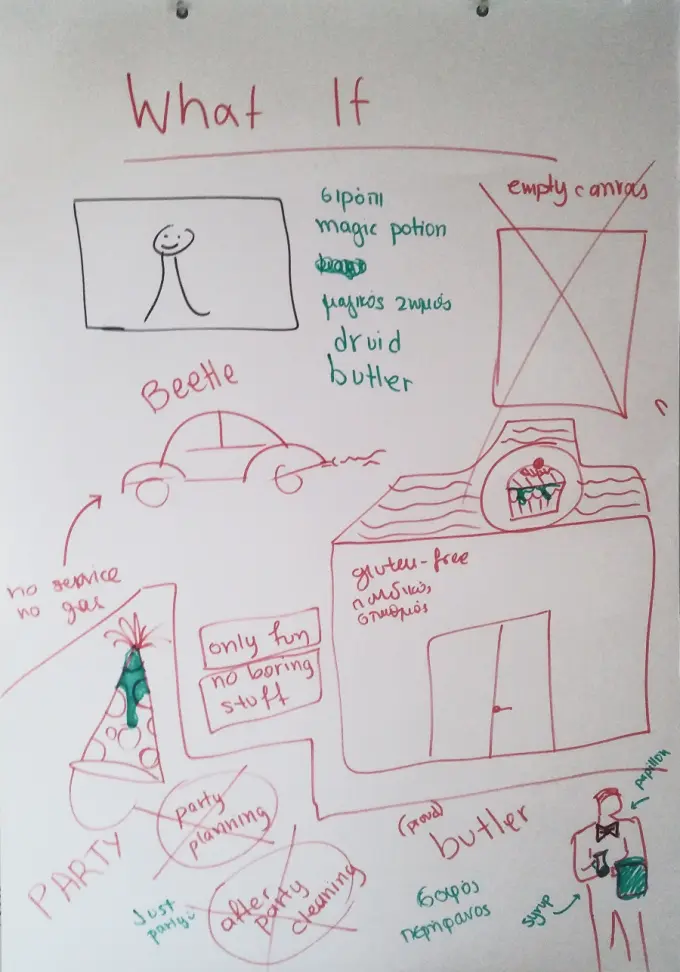 What If
σιρόπι
magic potion
μαγικός ζωμός
druid
butler
empty canvas
BEETLE
no service
no gas
gluten-free
παιδικός
σταθμός
only fun
no boring
stuff
party
planning
PARTY
Just
party
after
party
cleaning
(proud)
butler
σοφός
περήφανος
papillon
syrup